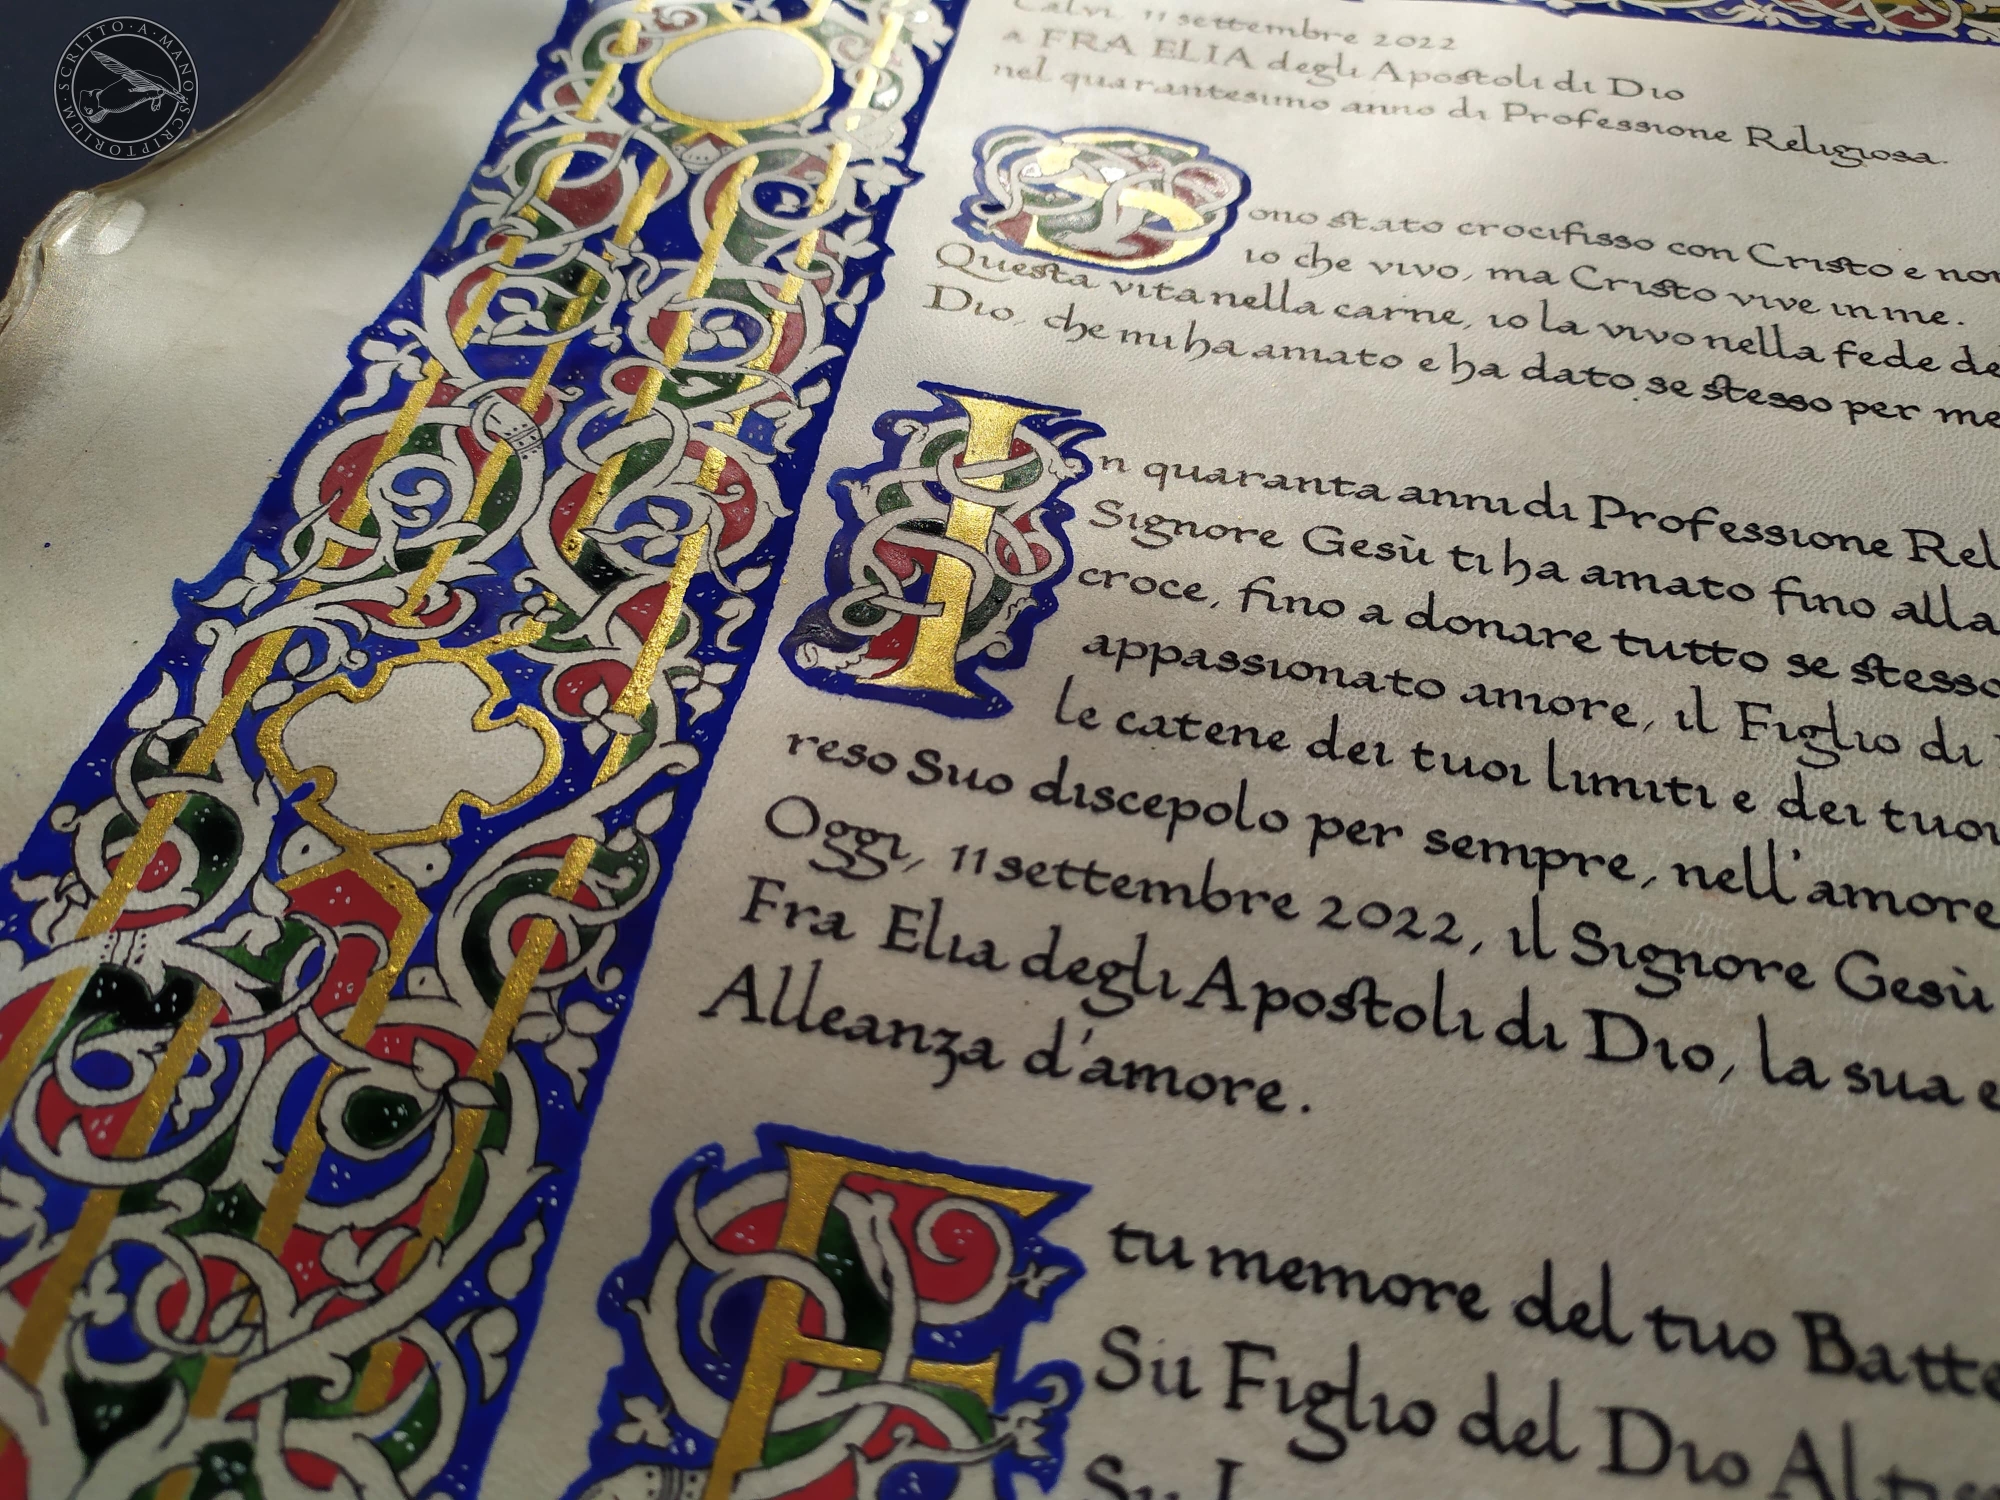 SCRIPTORIUM · SCRITTO · A · MANO
Calvi, 11 settembre 2022
a FRA ELIA degli Apostoli di Dio
nel quarantesimo anno di Professione Religiosa.
Sono stato crocifisso con Cristo e non
io che vivo, ma Cristo vive in me.
Questa vita nella carne, io la vivo nella fede de
Dio, che mi ha amato e ha dato se stesso per me
In quaranta anni di Professione Rel
Signore Gesù ti ha amato fino alla
croce, fino a donare tutto se stesso
appassionato amore, il Figlio di
le catene dei tuoi limiti e dei tuoi
reso Suo discepolo per sempre, nell'amore
Oggi, 11 settembre 2022, il Signore Gesù
Fra Elia degli Apostoli di Dio, la sua e
Alleanza d'amore.
E tu memore del tuo Batte
Sii Figlio del Dio Al
Su